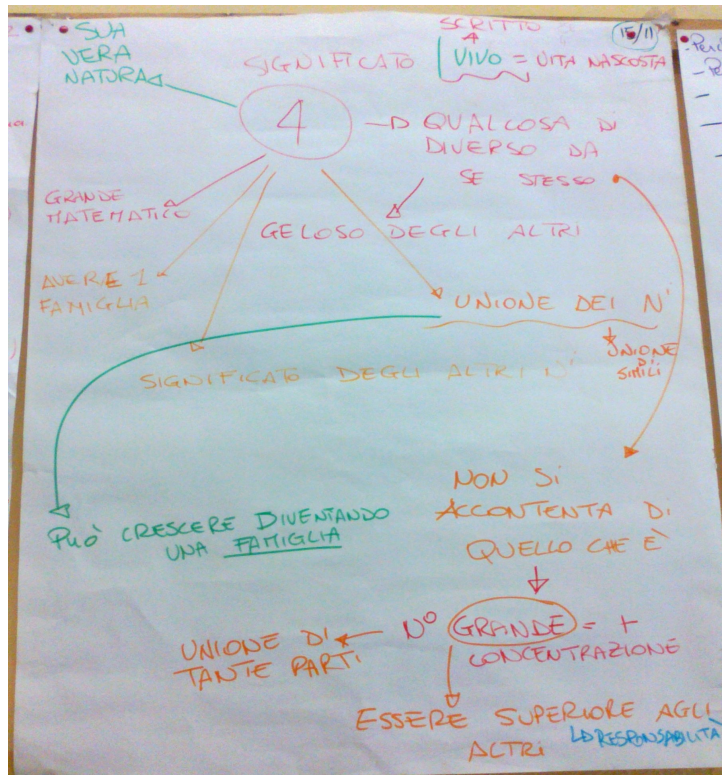 SUA
VERA
NATURA
SIGNIFICATO
SCRITTO
15/11
VIVO = VITA NASCOSTA
4
QUALCOSA DI
DIVERSO DA
SE STESSO
GRANDE
MATEMATICO
GELOSO DEGLI ALTRI
AVERE 1
FAMIGLIA
UNIONE DEI N'
UNIONE
DI
SIMILI
SIGNIFICATO DEGLI ALTRI N'
NON SI
ACCONTENTA DI
QUELLO CHE È
PUÒ CRESCERE DIVENTANDO
UNA FAMIGLIA
N° GRANDE = +
CONCENTRAZIONE
UNIONE DI
TANTE PARTI
ESSERE SUPERIORE AGLI
ALTRI
RESPONSABILITÀ